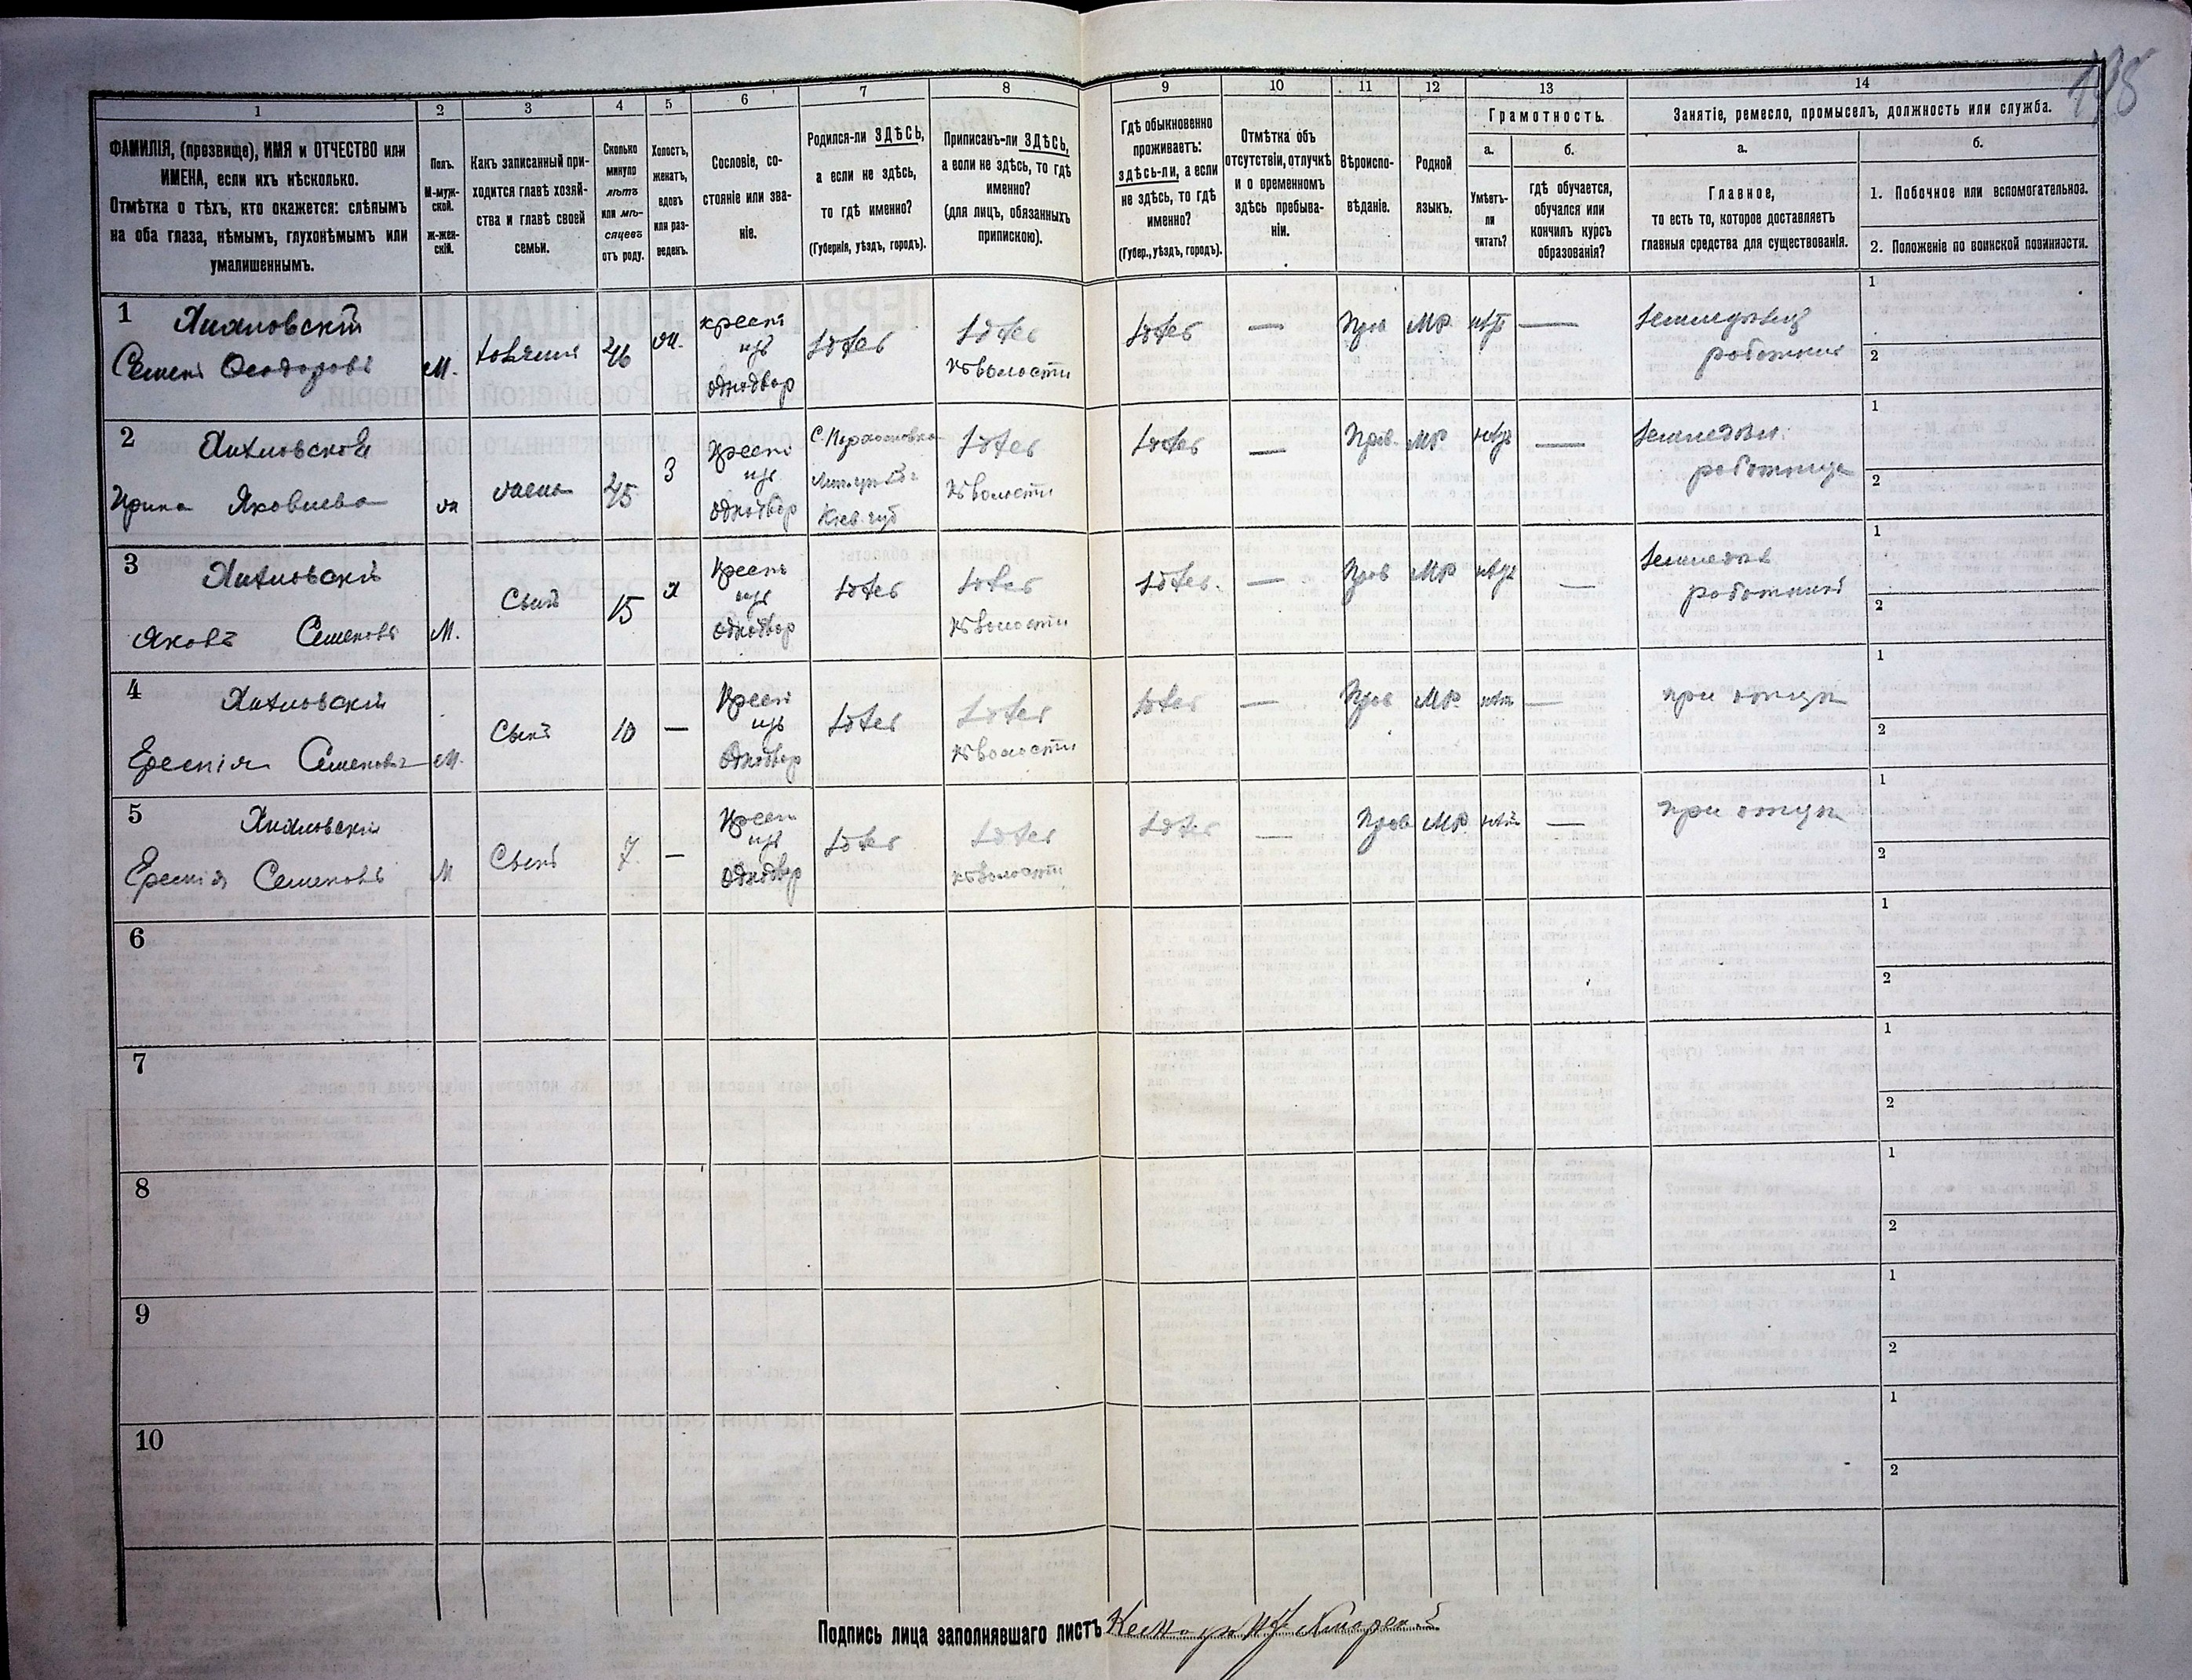 198
1
2
3
4
5
6
7
8
9
10
11
12
13
14
ФАМИЛІЯ, (прозвище), ИМЯ и ОТЧЕСТВО или
ИМЕНА, если ихъ нѣсколько.
Отмѣтка о тѣхъ, кто окажется: слѣпымъ
на оба глаза, нѣмымъ, глухонѣмымъ или
умалишеннымъ.
Полъ.
М-муж-
ской.
ж-жен-
скій.
Какъ записанный при-
ходится главѣ хозяй-
ства и главѣ своей
семьи.
Сколько
минуло
лѣтъ
или мѣ-
сяцевъ
отъ роду.
Холостъ,
женатъ,
вдовъ
или раз-
веденъ.
Сословіе, со-
стояніе или зва-
ніе.
Родился-ли ЗДѢСЬ,
а если не здѣсь,
то гдѣ именно?
(Губернія, уѣздъ, городъ).
Приписанъ-ли ЗДѢСЬ,
а если не здѣсь, то гдѣ
именно?
(для лицъ, обязанныхъ
припискою).
Гдѣ обыкновенно
проживаетъ:
здѣсь-ли, а если
не здѣсь, то гдѣ
именно?
(Губер., уѣздъ, городъ).
Отмѣтка объ
отсутствіи, отлучкѣ
и о временномъ
здѣсь пребыва-
ніи.
Вѣроиспо-
вѣданіе.
Родной
языкъ.
Грамотность.
а.
Умѣетъ-
ли
читать?
б.
гдѣ обучается,
обучался или
кончилъ курсъ
образованія?
Занятіе, ремесло, промыселъ, должность или служба.
а.
Главное,
то есть то, которое доставляетъ
главныя средства для существованія.
б.
1. Побочное или вспомогательное.
2. Положеніе по воинской повинности.
1
Семенъ Ѳеодоровъ
М.
хозяинъ
46
ж.
крест
изъ
однодвор
здѣсь
здѣсь
къ волости
здѣсь
—
Прав
МР
нѣтъ
—
работникъ
1
2
2
Ирина Яковлева
ж
жена
45
З
Крест
изъ
однодвор
Кіев. губ
здѣсь
къ волости
здѣсь
—
Прав.
МР
нѣтъ
—
земледѣл.
работница
1
2
3
Яковъ Семеновъ
М.
Сынъ
15
х
Крест
изъ
однодвор
здѣсь
здѣсь
къ волости
здѣсь.
—
Прав
МР
нѣтъ
—
земледѣл
работникъ
1
2
4
Семеновъ
М.
Сынъ
10
—
Крест
изъ
Однодвор
здѣсь
здѣсь
къ волости
здѣсь
—
Прав
МР
нѣтъ
—
при отцѣ
1
2
5
Семеновъ
М
Сынъ
7.
—
Крест
изъ
Однодвор
здѣсь
здѣсь
къ волости
здѣсь
—
Прав
МР
нѣтъ
—
при отцѣ
1
2
6
1
2
7
1
2
8
1
2
9
1
2
10
1
2
Подпись лица заполнявшаго листъ